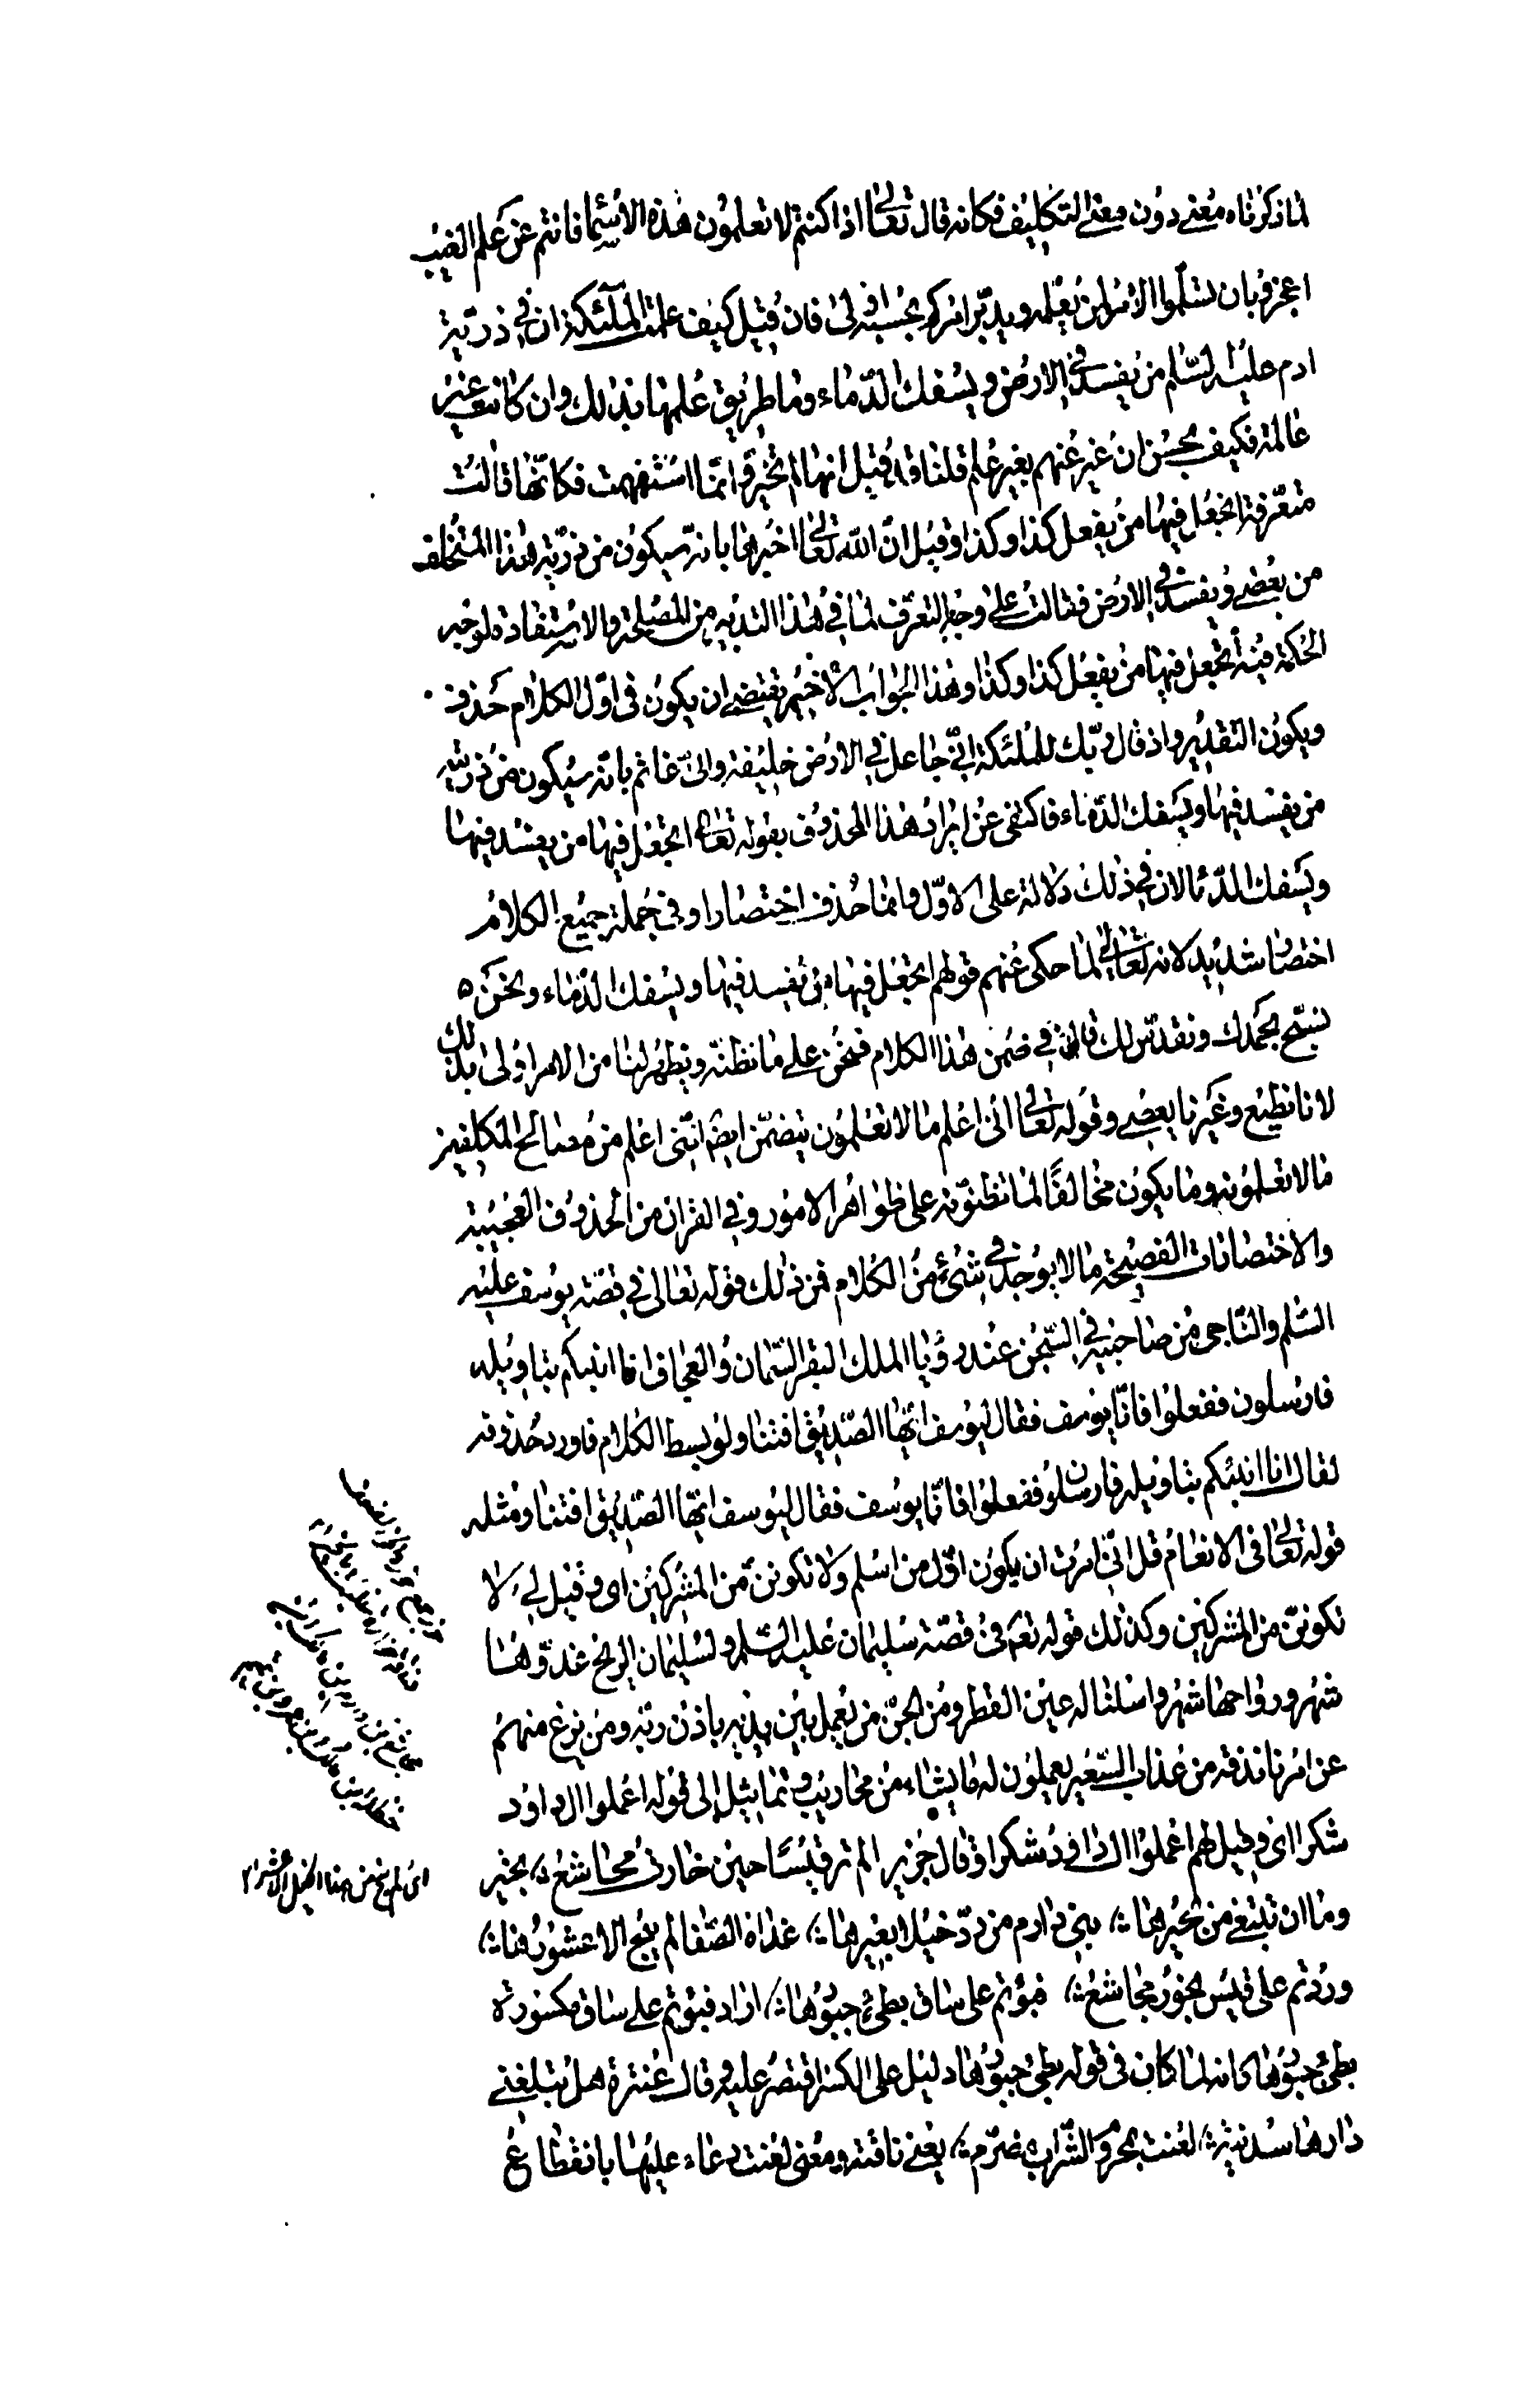 لما ذكرناه معنى دون معنى التكليف فكانه قال تعالى اذا كنتم لا تعلمون هذه الاسما فانتم عن علم الغيب
اعجز وبان تسلموا الامر لمن يعلمه ويدبر امركم بحسبه اولى فان قيل كيف علمت الملئكة ان في ذرية
ادم عليه السلم من يفسد في الارض ويسفك الدماء وما طريق علمها بذلك وان كانت غير
عالمة فكيف يحسن ان تخبر عنهم بغير علم قلنا قد قيل انها لم تخبر وانما استفهمت فكانها قالت
متعرفة اتجعل فيها من يفعل كذا وكذا وقيل ان الله تعالى اخبرها بانه سيكون من ذرية هذا المستخلف
من يعصى ويفسد في الارض فقالت على وجه التعرف لما في هذا التدبير من المصلحة والاستفادة لوجه
الحكمة فيه أتجعل فيها من يفعل كذا وكذا وهذا الجواب الاخير يقتضى ان يكون في اول الكلام حذف
ويكون التقدير واذ قال ربك للملئكة انى جاعل في الارض خليفة وانى عالم بانه سيكون من ذريته
من يفسد فيها ويسفك الدماء فاكتفى عن ايراد هذا المحذوف بقوله تعالى اتجعل فيها من يفسد فيها
ويسفك الدما لان في ذلك دلالة على الاول وانما حذف اختصارا وفي جملة جميع الكلام
اختصار شديد لانه تعالى لما حكى عنهم قولهم اتجعل فيها من يفسد فيها ويسفك الدماء ونحن
نسبح بحمدك ونقدس لك كان في ضمن هذا الكلام فنحن على ما نظنه ويظهر لنا من الامر اولى بذلك
لانا نطيع وغيرنا يعصى وقوله تعالى انى اعلم ما لا تعلمون يتضمن ايضا اننى اعلم من مصالح المكلفين
ما لا تعلمونه وما يكون مخالفا لما تظنونه على ظواهر الامور وفي القران من الحذوف العجيبة
والاختصارات الفصيحة ما لا يوجد في شىء من الكلام فمن ذلك قوله تعالى في قصة يوسف عليه
السلم والناجى من صاحبيه في السجن عند رؤيا الملك البقر السمان والعجاف انا انبئكم بتاويله
فارسلون ففعلوا فاتا يوسف فقال ليوسف ايها الصديق افتنا ولو بسط الكلام فاورد محذوفه
لقال انا انبئكم بتاويله فارسلون ففعلوا فاتا يوسف فقال ليوسف ايها الصديق افتنا ومثله
قوله تعالى في الانعام قل انى امرت ان يكون اول من اسلم ولا تكونن من المشركين اى وقيل لي لا
تكونن من المشركين وكذلك قوله تعالى في قصة سليمان عليه السلم ولسليمان الريح غدوها
شهر ورواحها شهر واسلنا له عين القطر ومن الجن من يعمل بين يديه باذن ربه ومن يزغ منهم
عن امرنا نذقه من عذاب السعير يعملون له ما يشاء من محاريب وتماثيل الى قوله اعملوا ال داود
شكرا اى وقيل لهم اعملوا ال داود شكرا وقال جرير الم تر قيسا حين خارت مجاشع بخير
وما ان تبتغى من يخيرها بنى دارم من رد خيلا بغيرها غداة الصفا لم ينج الا عشورها
وردتم على قيس بخور مجاشع فبؤتم على ساق بطىء جبورها اراد فبؤتم على ساق مكسورة
بطىء جبورها كانه لما كان في قوله بطىء جبورها دليل على الكسر اقتصر عليه وقال عنترة هل تبلغنى
دارها شدنية لعنت بمحروم الشراب مصرم يعنى ناقته ومعنى لعنت دعاء عليها بانقطاع
اى لم ينج من هذا الخيل الا عشرا